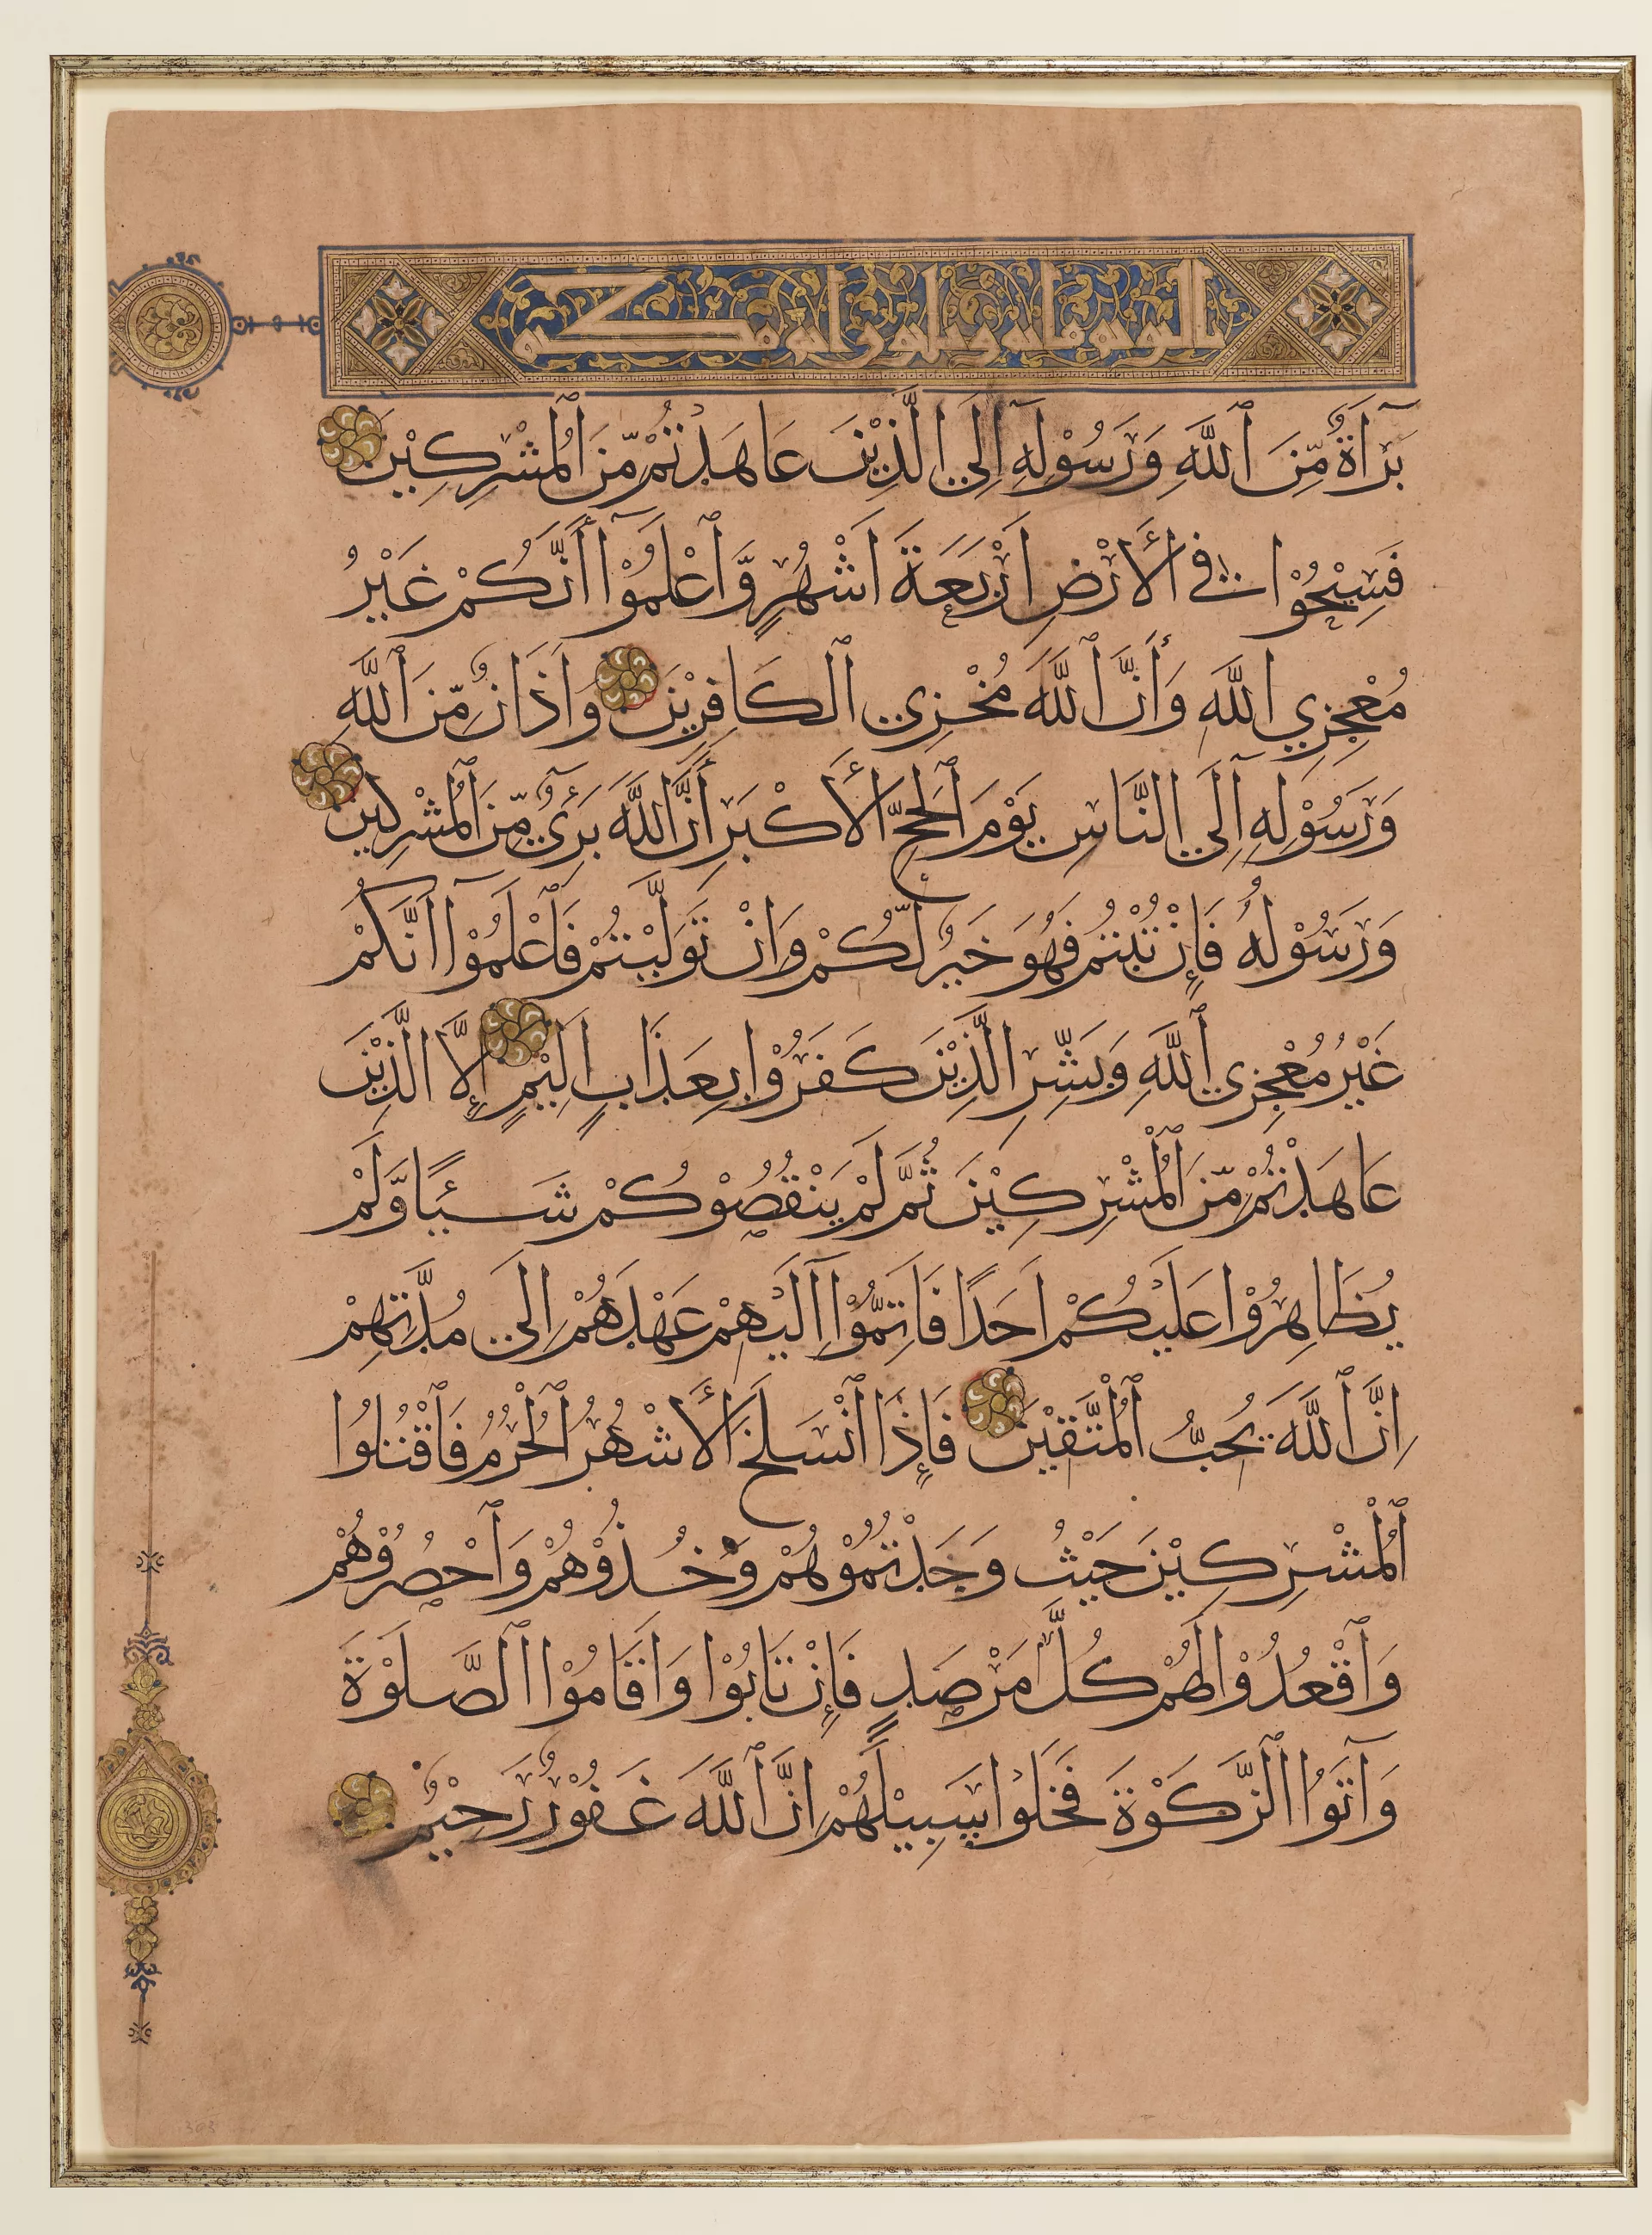 بَرَآءَةٌ مِّنَ ٱللَّهِ وَرَسُوْلِهِ إِلَى الَّذِيْنَ عَاهَدْتُمْ مِّنَ ٱلْمُشْرِكِيْنَ
فَسِيْحُوْا فِي ٱلْأَرْضِ اَرْبَعَةَ اَشْهُرٍ وَّٱعْلَمُوْآ أَنَّكُمْ غَيْرُ
مُعْجِزِي اللَّهِ وَأَنَّ ٱللَّهَ مُخْزِي ٱلْكَافِرِيْنَ وَاَذَانٌ مِّنَ ٱللَّهِ
وَرَسُوْلِهِ إِلَى النَّاسِ يَوْمَ ٱلْحَجِّ ٱلْأَكْبَرِ أَنَّ ٱللَّهَ بَرِيٓءٌ مِّنَ ٱلْمُشْرِكِيْنَ
وَرَسُوْلُهُ فَإِنْ تُبْتُمْ فَهُوَ خَيْرٌ لَّكُمْ وَاِنْ تَوَلَّيْتُمْ فَٱعْلَمُوْآ اَنَّكُمْ
غَيْرُ مُعْجِزِي ٱللَّهِ وَبَشِّرِ الَّذِيْنَ كَفَرُوْا بِعَذَابٍ اَلِيْمٍ إِلَّا الَّذِيْنَ
عَاهَدْتُمْ مِّنَ ٱلْمُشْرِكِيْنَ ثُمَّ لَمْ يَنْقُصُوْكُمْ شَيْئًا وَّلَمْ
يُظَاهِرُوْا عَلَيْكُمْ اَحَدًا فَاَتِمُّوْآ اِلَيْهِمْ عَهْدَهُمْ اِلَى مُدَّتِهِمْ
اِنَّ ٱللَّهَ يُحِبُّ ٱلْمُتَّقِيْنَ فَإِذَا ٱنْسَلَخَ ٱلْأَشْهُرُ ٱلْحُرُمُ فَٱقْتُلُوا
ٱلْمُشْرِكِيْنَ حَيْثُ وَجَدْتُمُوْهُمْ وَخُذُوْهُمْ وَٱحْصُرُوْهُمْ
وَٱقْعُدُوْا لَهُمْ كُلَّ مَرْصَدٍ فَإِنْ تَابُوْا وَاَقَامُوْا ٱلصَّلَوٰةَ
وَآتَوُا ٱلزَّكَوٰةَ فَخَلُّوْا سَبِيْلَهُمْ اِنَّ ٱللَّهَ غَفُوْرٌ رَحِيْمٌ